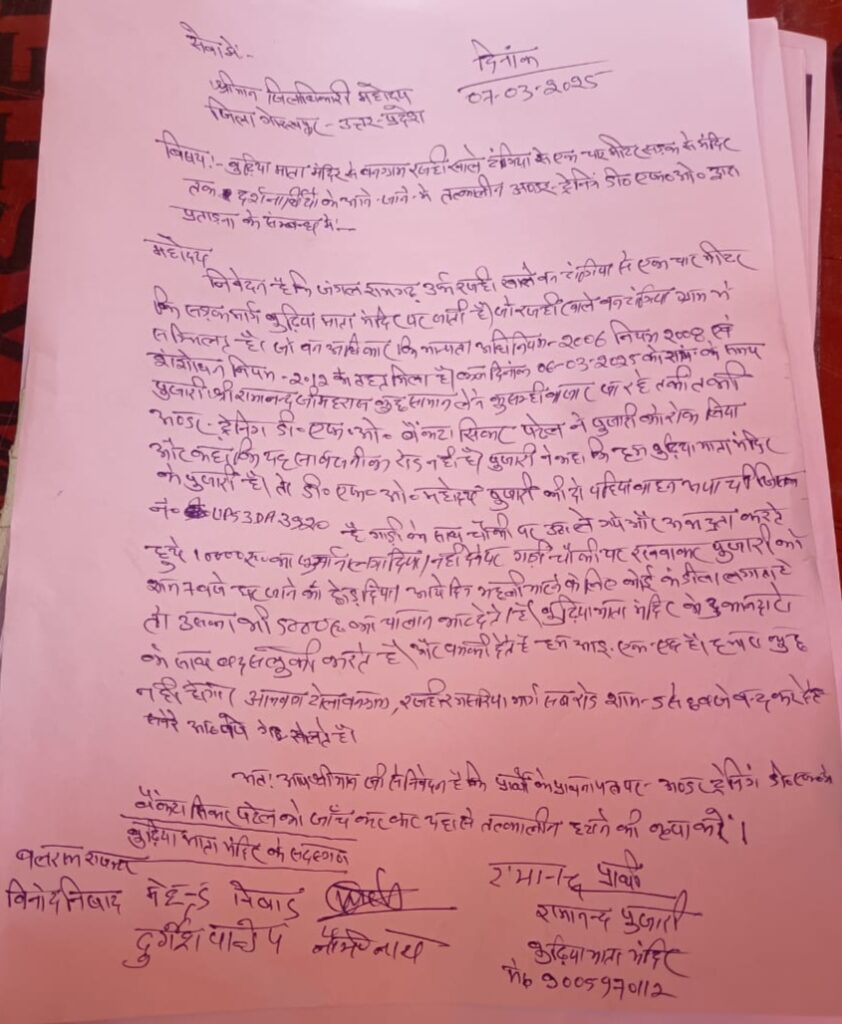 सेवा में-
दिनांक
07-03-2025
श्रीमान जिलाधिकारी महोदय
जिला गोरखपुर - उत्तर-प्रदेश
विषय:- बुढ़िया माता मंदिर के वनग्राम रजही खाले टांगिया के एक चार मीटर सड़क से मंदिर
तक दर्शनार्थियों के आने-जाने में तत्कालीन अण्डर-ट्रेनिंग डी० एफ० ओ० द्वारा
प्रताड़ना के सम्बन्ध में:-
महोदय
निवेदन है कि जंगल रामगढ़ उर्फ रजही खाले वन टांगिया से एक चार मीटर
कि सड़क मार्ग बुढ़िया माता मंदिर पर जाती है। जो रजही खाले वनटांगिया ग्राम में
सम्मिलित है। जो वन अधिकार कि मान्यता अधिनियम-2006 नियम 2008 एवं
संशोधन नियम-2012 के तहत मिला है। कल दिनांक 06-03-2025 को शाम के समय
पुजारी श्री रामानन्द जी महराज कुछ सामान लेने कुसम्ही बाजार जा रहे थे की
अण्डर-ट्रेनिंग डी० एफ० ओ० वेंकटा सिकर पटेल ने पुजारी को रोक लिया
और कहा कि यह सार्वजनीक रोड नहीं है। पुजारी ने कहा कि हम बुढ़िया माता मंदिर
के पुजारी है। तो डी० एफ० ओ० महोदय पुजारी की दो पहिया वाहन जिसका
नं० UP53DA3920 है गाड़ी के साथ चौकी पर उठा ले गये और अभद्रता करते
हुये 10000रू० का जुर्माना लगा दिया। नहीं देने पर गाड़ी चौकी पर रखवाकर पुजारी को
शाम 7 बजे घर जाने को छोड़ दिया। आये दिन के लिए कोई कंडीला लगाता है
तो उसका भी 5000रू० का चालान काट देते है। बुढ़िया माता मंदिर के दुकानदारो
के साथ बदसलुकी करते है और धमकी देते है हम आइ. एफ. एस है। हमारा कुछ
नही होगा। वनग्राम, रजही मार्ग सब रोड शाम-5 से 6 बजे बन्द कर देते है
सवेरे आठ बजे गेट खोलते है।
अतः आप श्रीमान जी से निवेदन है कि प्रार्थी के प्रार्थना पत्र पर- अण्डर ट्रेनिंग डी० एफ० ओ०
वेंकटा सिकर पटेल को जाँच कर कर यहा से तत्कालीन हटाने की कृपा करें।
बुढ़िया माता मंदिर के सदस्यगण
बलराम राजभर
विनोद निषाद
दुर्गेश पान्डेय
रामानन्द प्रार्थी
रामानन्द पुजारी
बुढ़िया माता मंदिर
मो० 9005970112